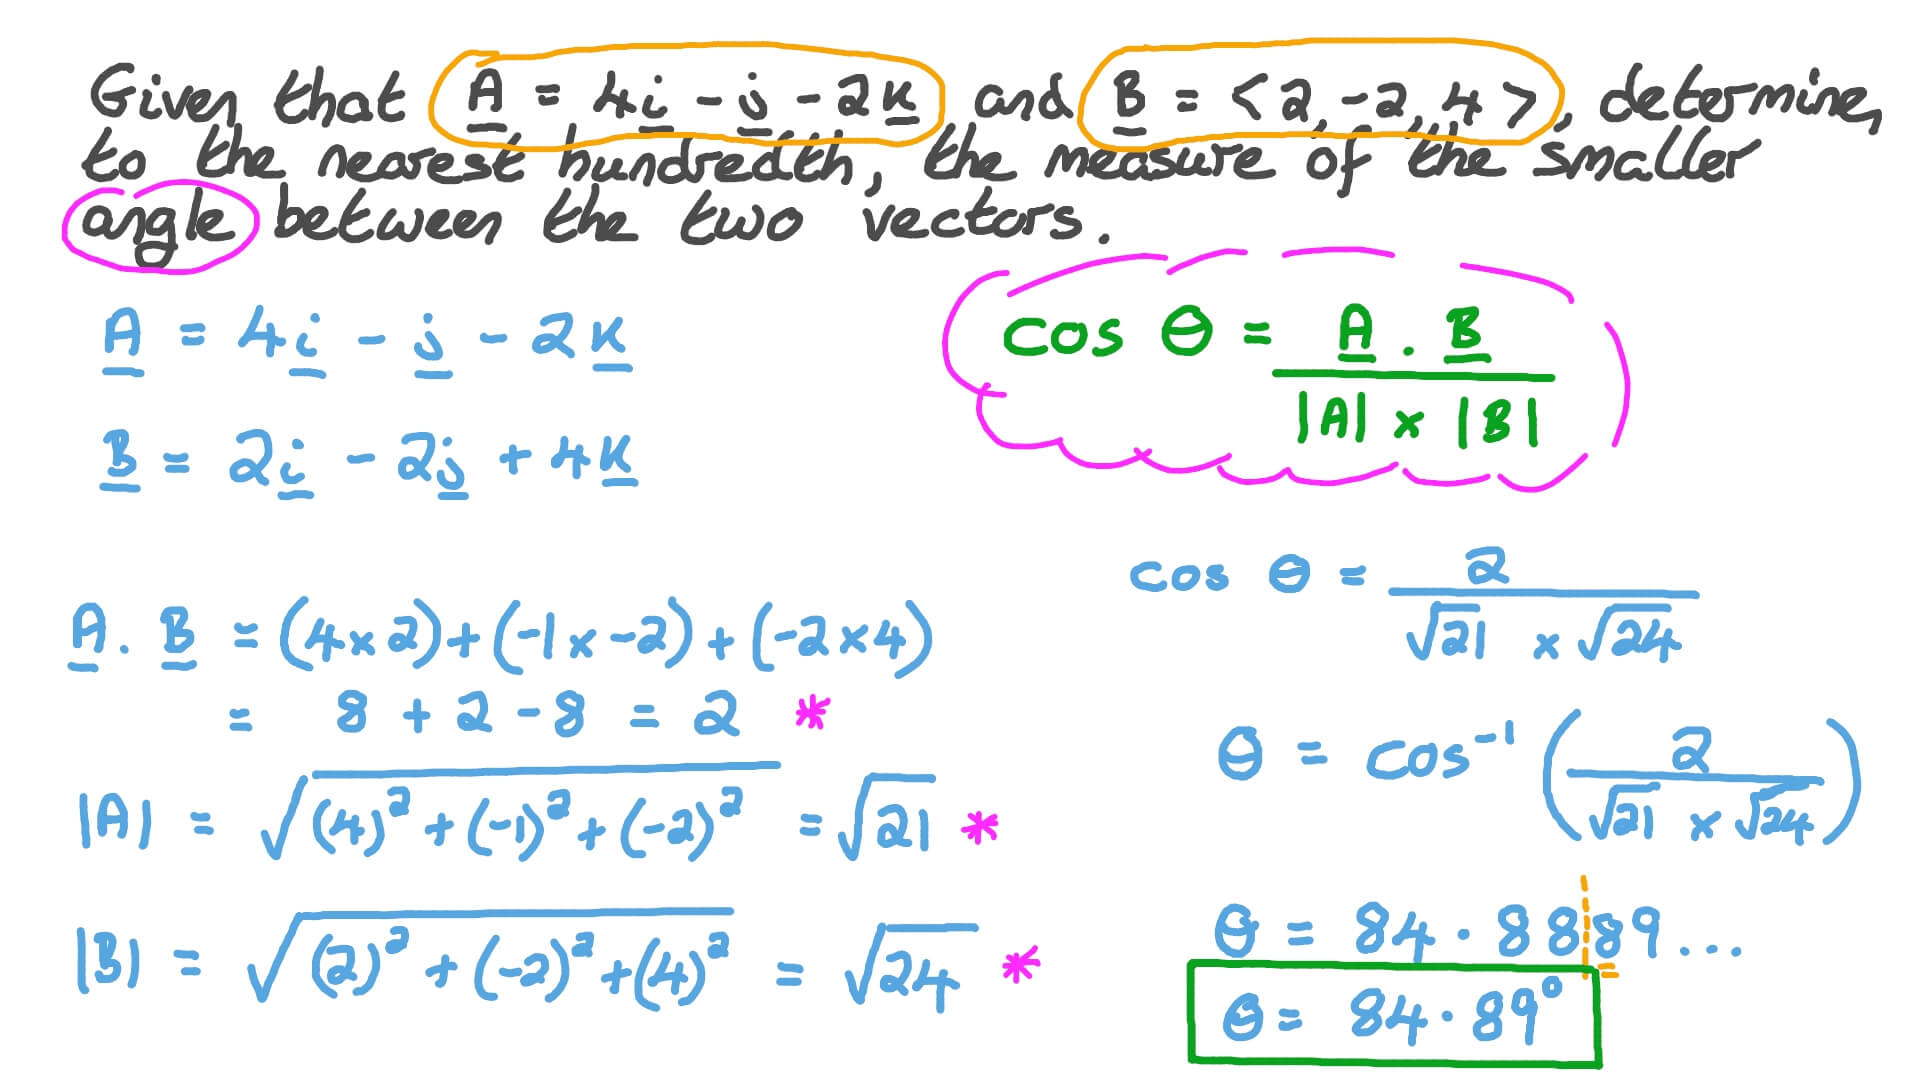 Given that A = 4i - j - 2k and B = <2 -2, 4>, determine,
to the nearest hundredth, the measure of the smaller
angle between the two vectors.
A = 4i - j - 2k
B = 2i - 2j + 4k
cos θ = A . B / |A| x |B|
A . B = (4x2)+(-1x-2)+(-2x4)
= 8 + 2 - 8 = 2 *
|A| = √(4)²+(-1)²+(-2)² = √21 *
|B| = √(2)²+(-2)²+(4)² = √24 *
cos θ = 2 / √21 x √24
θ = cos⁻¹ (2 / √21 x √24)
θ = 84.8889...
θ = 84.89°